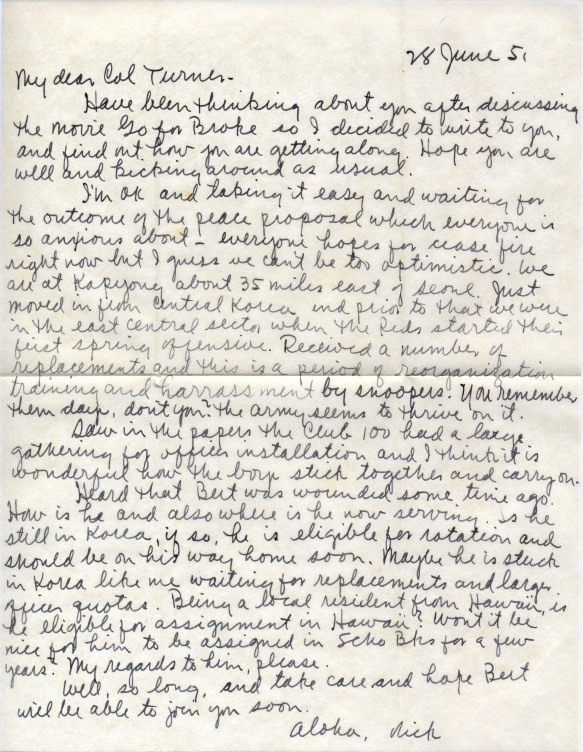 28 June 51
My dear Col Turner-
Have been thinking about you after discussing
the movie Go for Broke so I decided to write to you,
and find out how you are getting along. Hope you are
well and kicking around as usual.
I'm OK and taking it easy and waiting for
the outcome of the peace proposal which everyone is
so anxious about - everyone hopes for cease fire
right now but I guess we can't be too optimistic. We
are at Kapyong about 35 miles east of Seoul. Just
moved in from Central Korea and prior to that we were
in the east central sector when the Reds started their
first spring offensive. Received a number of
replacements and this is a period of reorganization
training and harrassment by snoopers. You remember
them days, don't you? The army seems to thrive on it.
Saw in the papers the Club 100 had a large
gathering for officer installation and I think it is
wonderful how the boys stick together and carry on.
Heard that Bert was wounded some time ago.
How is he and also where is he now serving. Is he
still in Korea, if so, he is eligible for rotation and
should be on his way home soon. Maybe he is stuck
in Korea like me waiting for replacements and larger
officer quotas. Being a local resident from Hawaii, is
he eligible for assignment in Hawaii? Won't it be
nice for him to be assigned in Scho Bks for a few
years? My regards to him, please.
Well, so long, and take care and hope Bert
will be able to join you soon.
Aloha, Nick